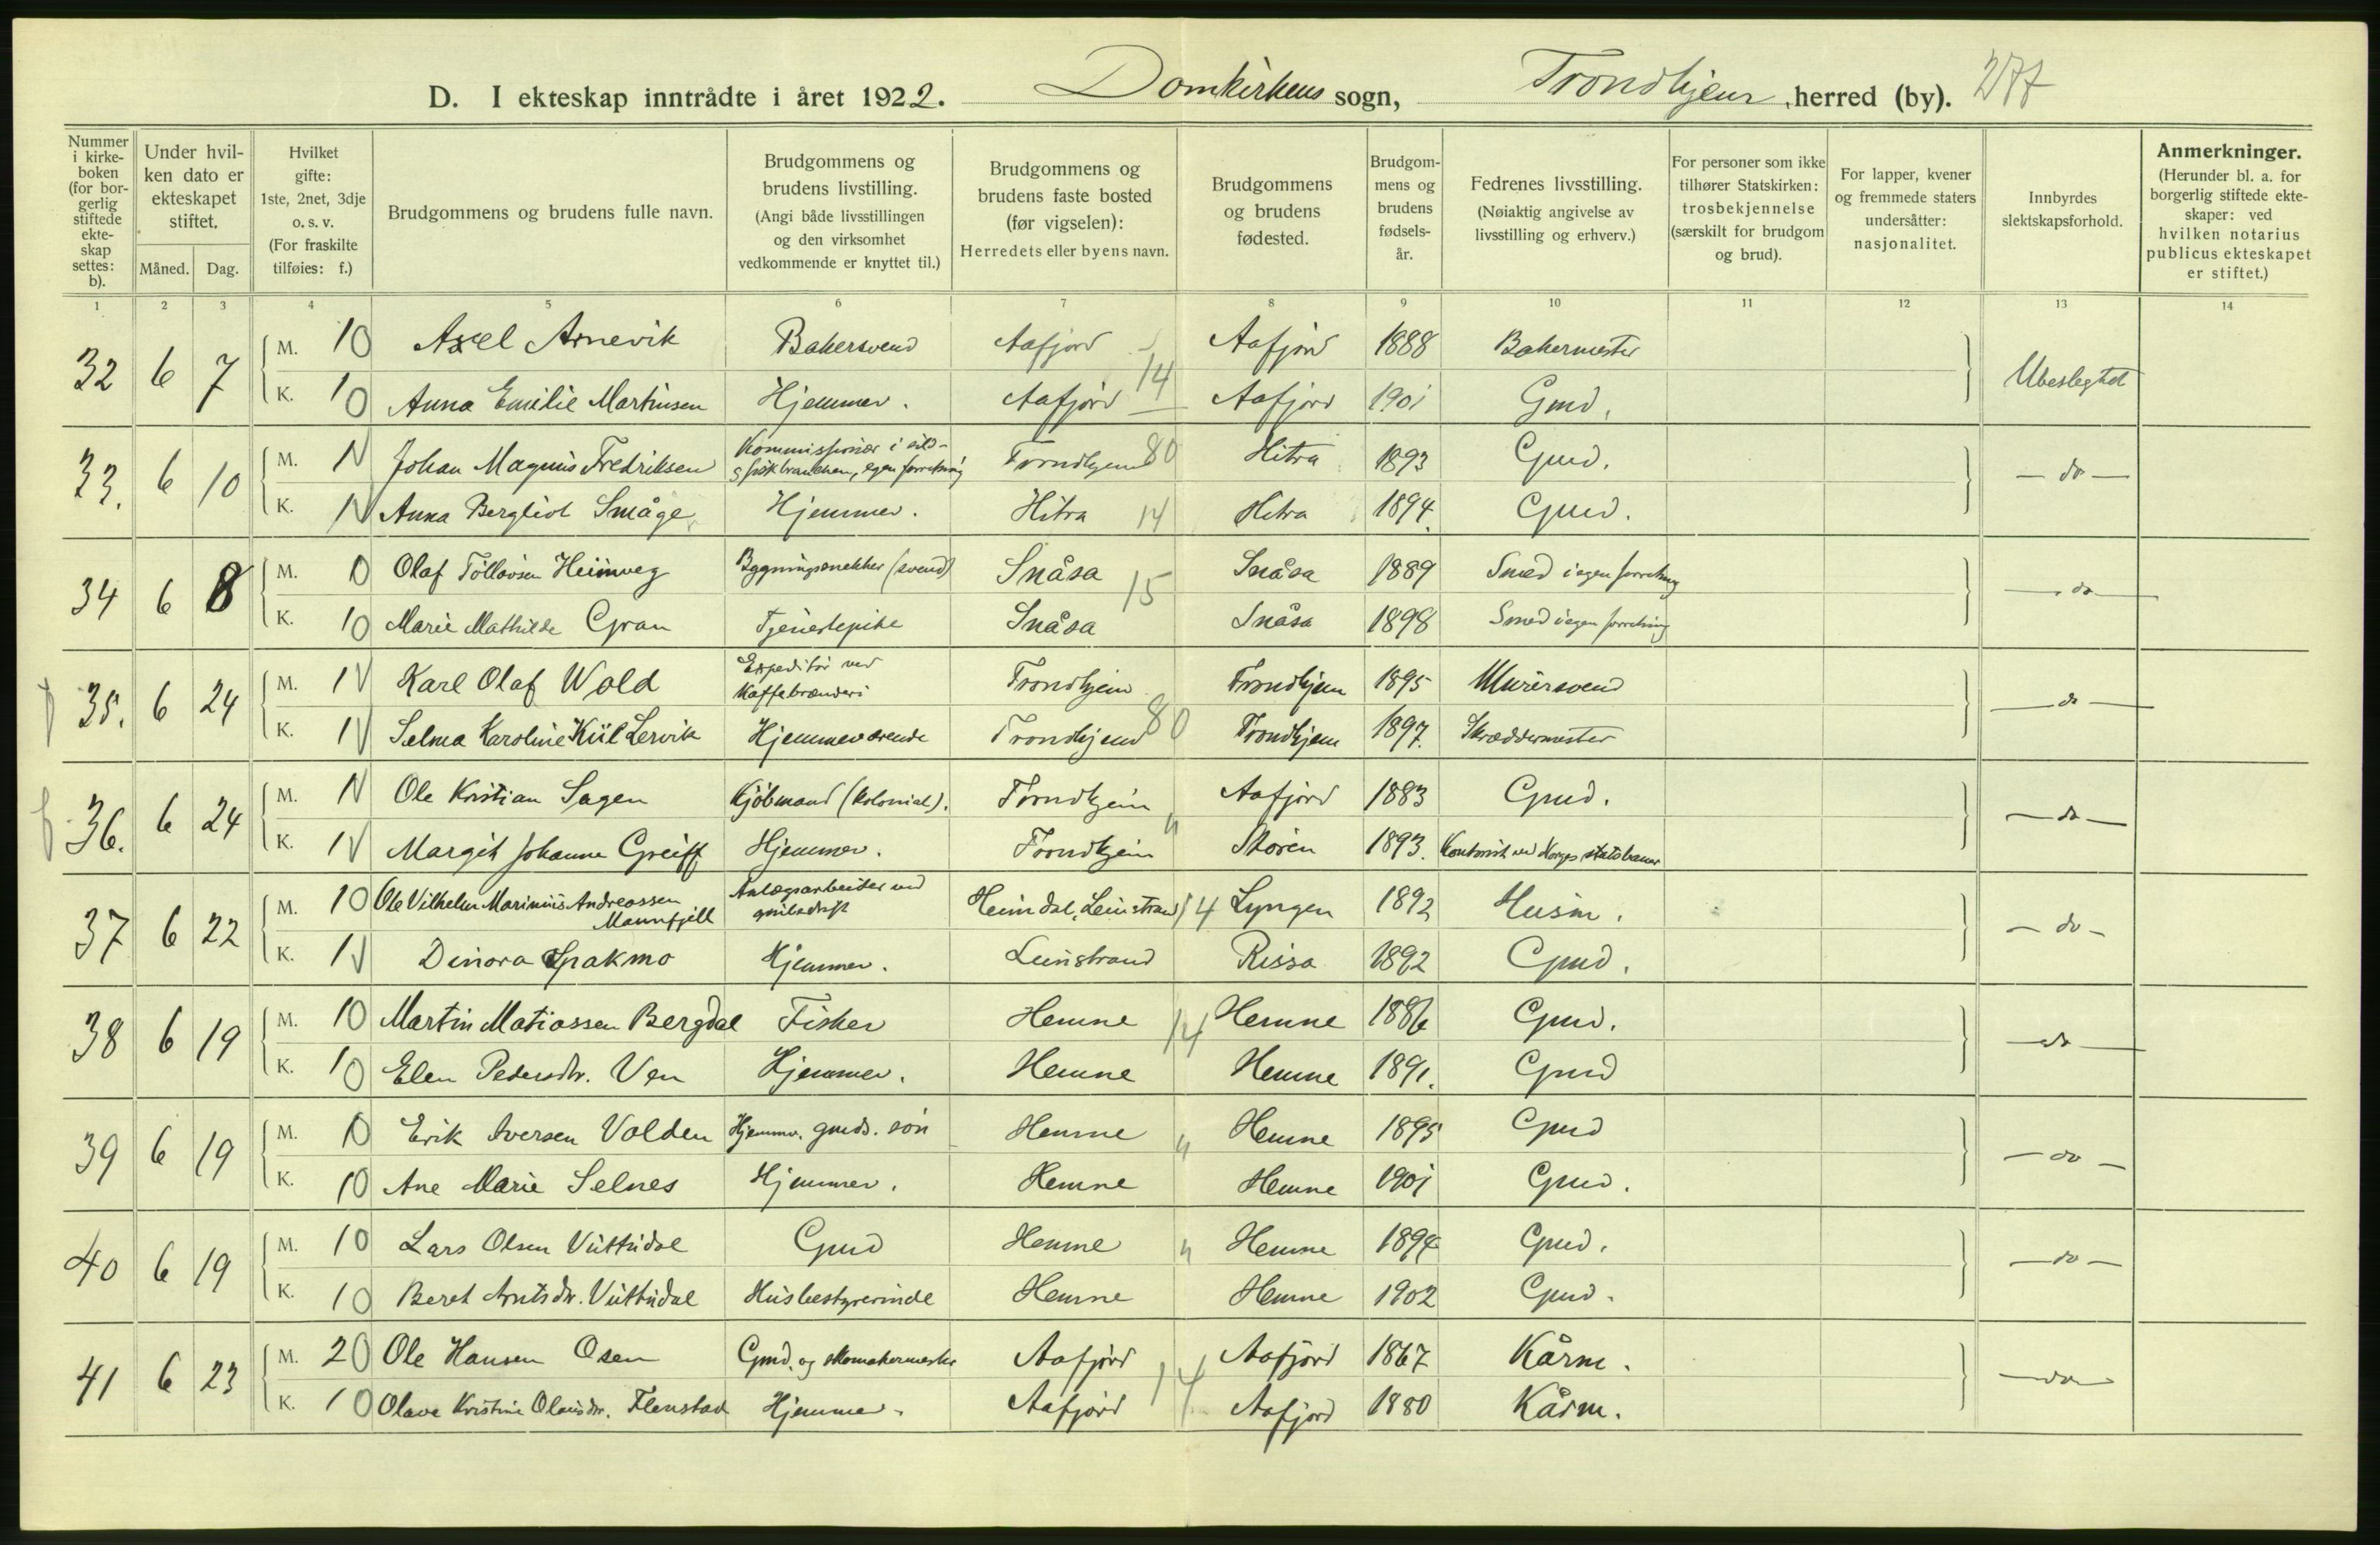 D. I ekteskap inntrådte i året 1922. Domkirkens sogn, Trondhjem herred (by). 277
Nummer i kirke-boken (for bor-gerlig stiftede ekte-skap settes: b).
Under hvil-ken dato er ekteskapet stiftet.
Måned. Dag.
Hvilket gifte: 1ste, 2net, 3dje o. s. v. (For fraskilte tilføies: f.)
Brudgommens og brudens fulle navn.
Brudgommens og brudens livstilling. (Angi både livsstillingen og den virksomhet vedkommende er knyttet til.)
Brudgommens og brudens faste bosted (før vigselen): Herredets eller byens navn.
Brudgommens og brudens fødested.
Brudgom-mens og brudens fødsels-år.
Fedrenes livsstilling. (Nøiaktig angivelse av livsstilling og erhverv.)
For personer som ikke tilhører Statskirken: trosbekjennelse (særskilt for brudgom og brud).
For lapper, kvener og fremmede staters undersåtter: nasjonalitet.
Innbyrdes slektskapsforhold.
Anmerkninger. (Herunder bl. a. for borgerlig stiftede ekte-skaper: ved hvilken notarius publicus ekteskapet er stiftet.)
1 2 3 4 5 6 7 8 9 10 11 12 13 14
32 6 7 M. 10 Axel Arnevik Bakersvend Aafjord Aafjord 1888 Bakermester Ubeslegtet
K. 10 Anna Emilie Martinsen Hjemmev. Aafjord 14 Aafjord 1901 Gmd.
33. 6 10 M. 1 Johan Magnus Fredriksen Kommissionær i sild- & fiskbranchen, egen forretning Trondhjem 80 Hitra 1893 Gmd. - do -
K. 1 Anna Bergliot Småge Hjemmev. Hitra 14 Hitra 1894. Gmd.
34 6 8 M. 10 Olaf Tollovsen Heimveg Bygningsnekker (svend) Snåsa 15 Snåsa 1889 Smed i egen forretning - do -
K. 10 Marie Mathilde Gran Tjenestepike Snåsa Snåsa 1898 Smed i egen forretning
35. 6 24 M. 1 Karl Olaf Wold Expeditør ved Kaffebrænderi Trondhjem Trondhjem 1895 Murersvend - do -
K. 1 Selma Karoline Kiil Lervik Hjemmeværende Trondhjem 80 Trondhjem 1897. Skræddermester
36. 6 24 M. 1 Ole Kristian Sagen Kjøbmand (kolonial). Trondhjem " Aafjord 1883 Gmd. - do -
K. 1 Margit Johanne Greiff Hjemmev. Trondhjem Støren 1893. Kontorist ved Norges statsbaner
37 6 22 M. 10 Ole Vilhelm Marinius Andreassen Mannfjell Anlægsarbeider ved Heimdal, Leinstrand 14 Lyngen 1892 Husm. - do -
K. 1 Dinora Sprakmo Hjemmev. Leinstrand Rissa 1892 Gmd.
38 6 19 M. 10 Martin Matiassen Bergdal Fisker Hemne 14 Hemne 1886 Gmd. - do -
K. 10 Elen Pedersdtr. Ven Hjemmev. Hemne Hemne 1891. Gmd
39 6 19 M. 10 Erik Iversen Volden Hjemmev. gmds. søn Hemne " Hemne 1895 Gmd - do -
K. 10 Ane Marie Selnes Hjemmev. Hemne Hemne 1901 Gmd.
40 6 19 M. 10 Lars Olsen Vuttudal Gmd Hemne " Hemne 1894 Gmd. - do -
K. 10 Beret Arntsdtr. Vuttudal Husbestyrerinde Hemne Hemne 1902 Gmd.
41 6 23 M. 20 Ole Hansen Osen Gmd. og skomakermester Aafjord 14 Aafjord 1867 Kårm. - do -
K. 10 Olava Kristine Olausdtr. Flenstad Hjemmev. Aafjord Aafjord 1880 Kårm.